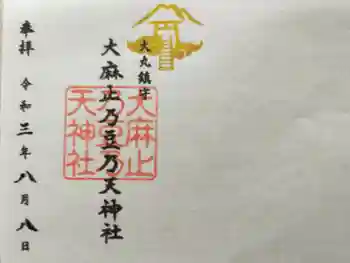 大丸鎮守
大麻止乃豆乃天神社
大麻止
乃豆乃
天神社
奉拝
令和三年八月八日